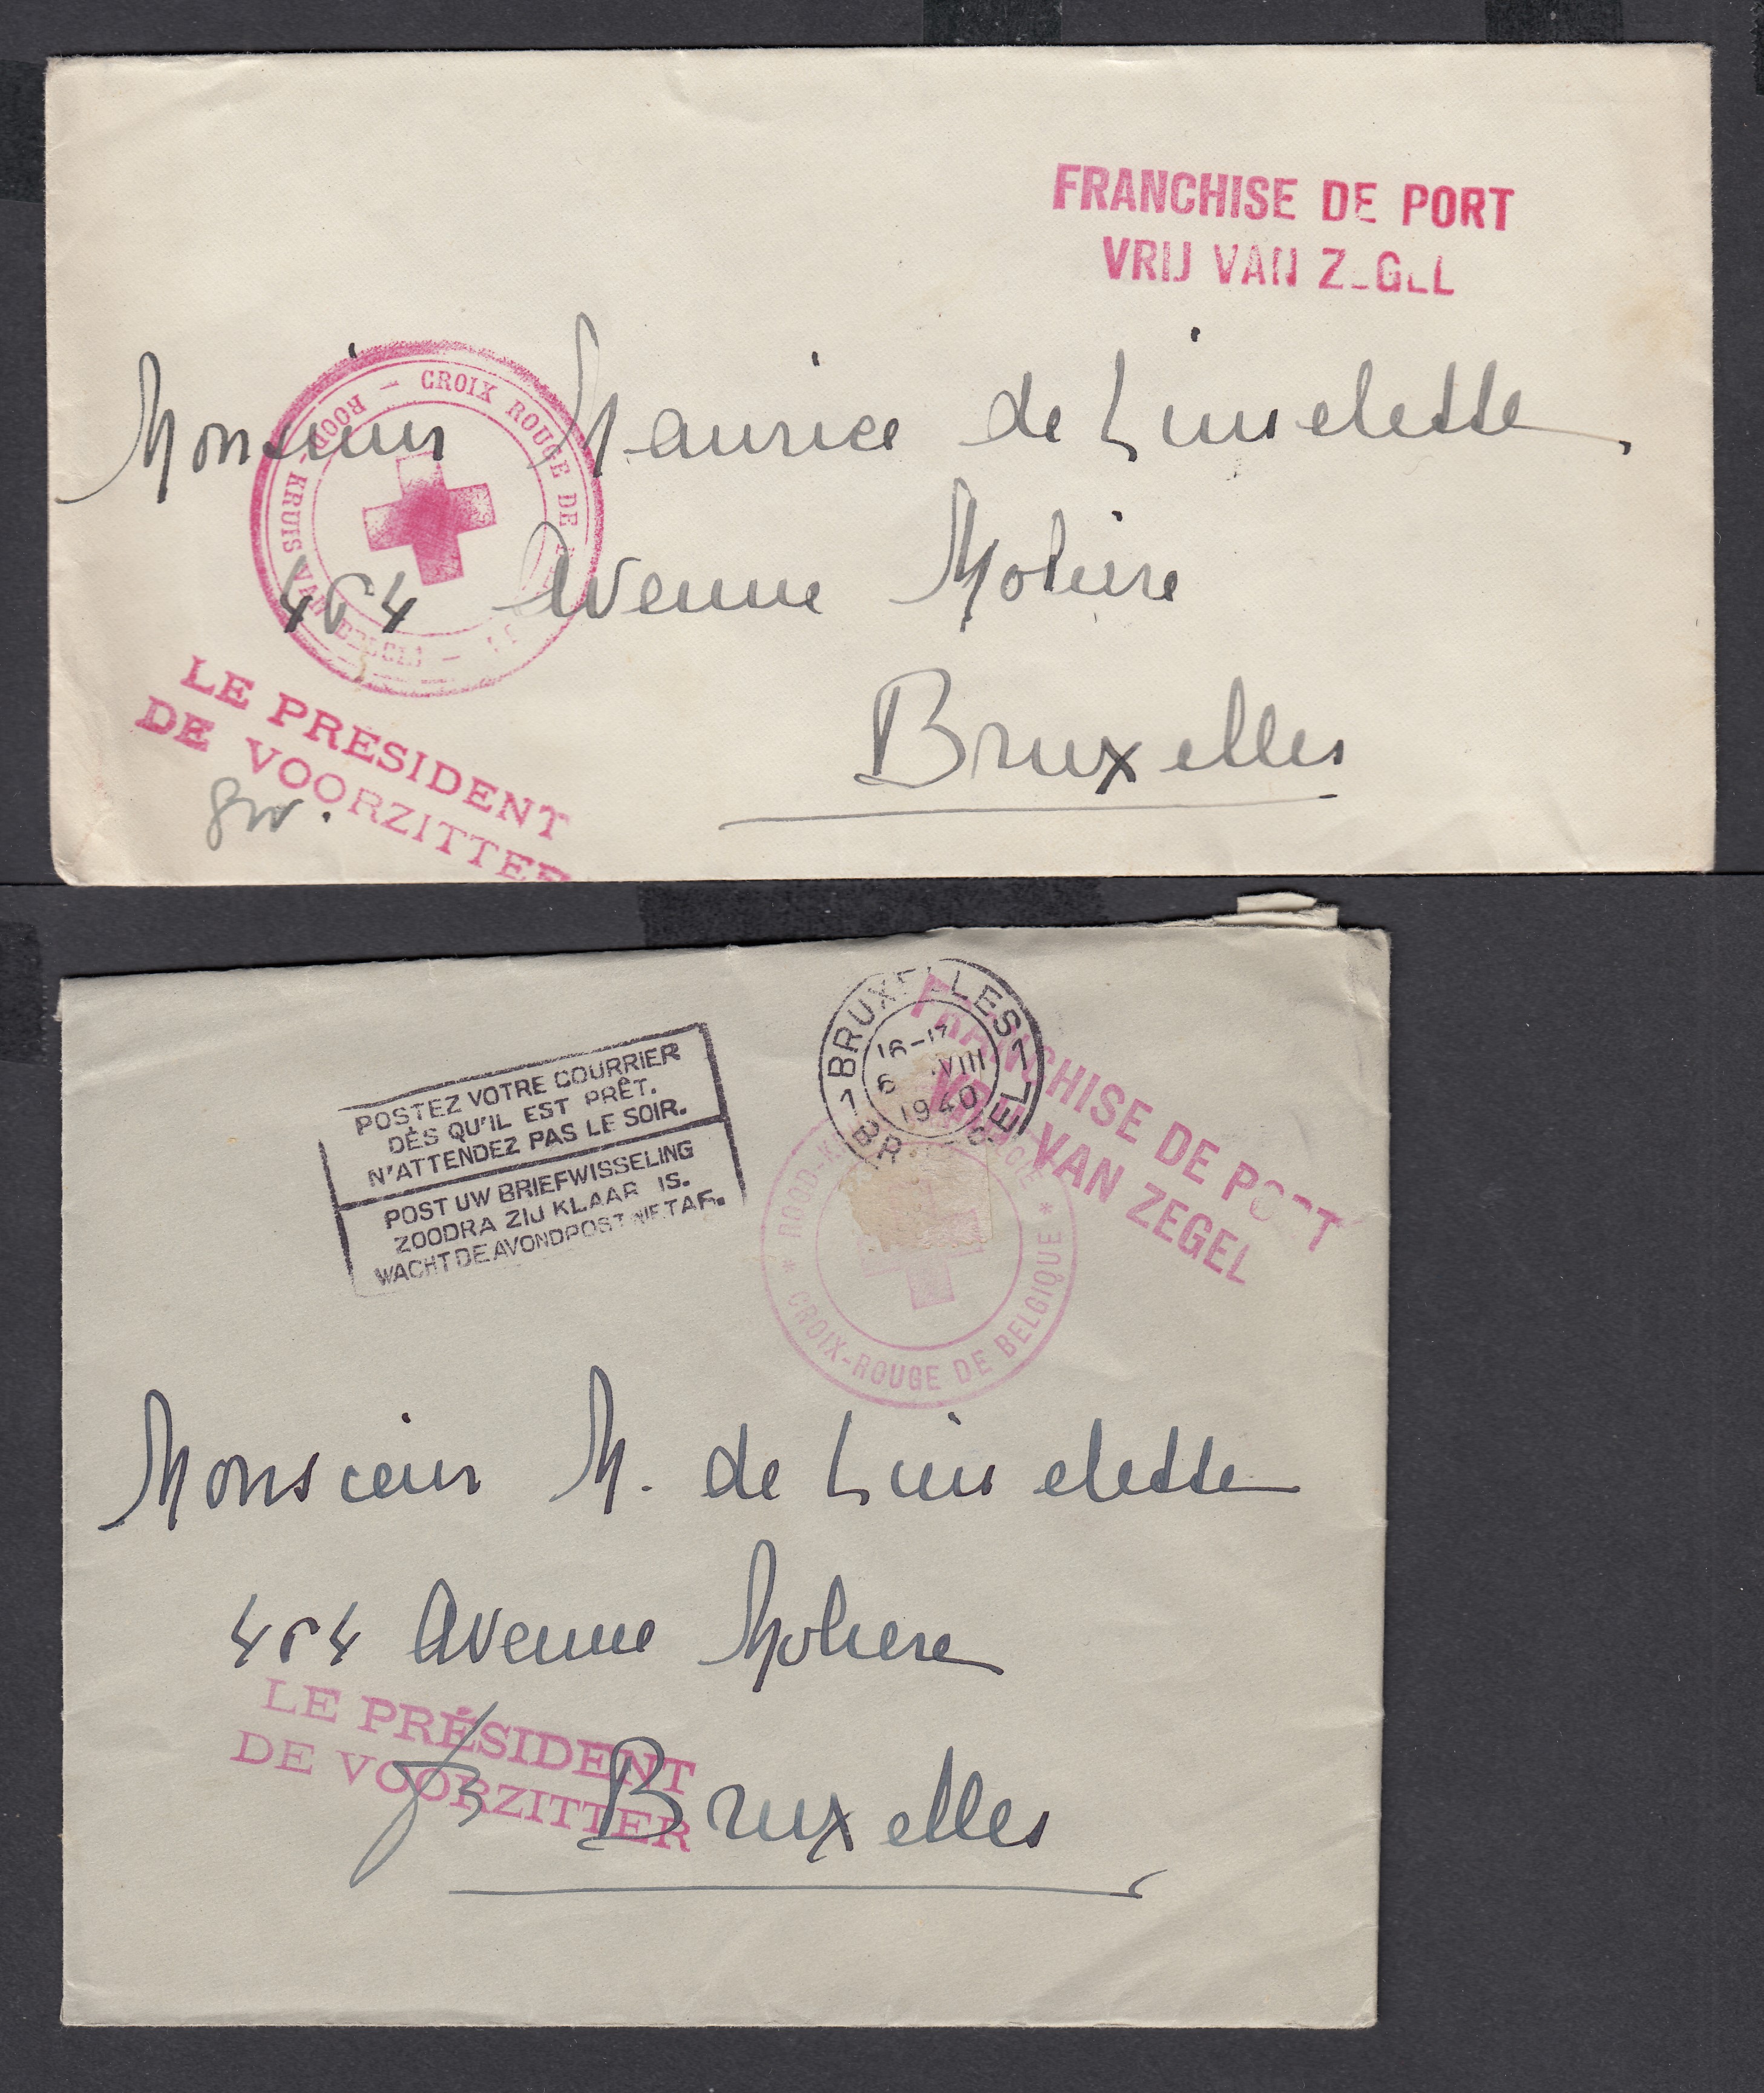 FRANCHISE DE PORT
VRIJ VAN ZEGEL
CROIX ROUGE DE
ROOD-KRUIS VAN
Monsieur Maurice de Limelette
454 Avenue Molière
Bruxelles
LE PRESIDENT
DE VOORZITTER
BRUXELLES
16-17
6 VIII
1940
1 BRUSSEL 1
FRANCHISE DE PORT
VRIJ VAN ZEGEL
POSTEZ VOTRE COURRIER
DÈS QU'IL EST PRÊT.
N'ATTENDEZ PAS LE SOIR.
POST UW BRIEFWISSELING
ZOODRA ZIJ KLAAR IS.
WACHT DE AVONDPOST NIET AF.
* CROIX-ROUGE DE BELGIQUE *
Monsieur M. de Limelette
454 Avenue Moliere
LE PRÉSIDENT
DE VOORZITTER
Bruxelles